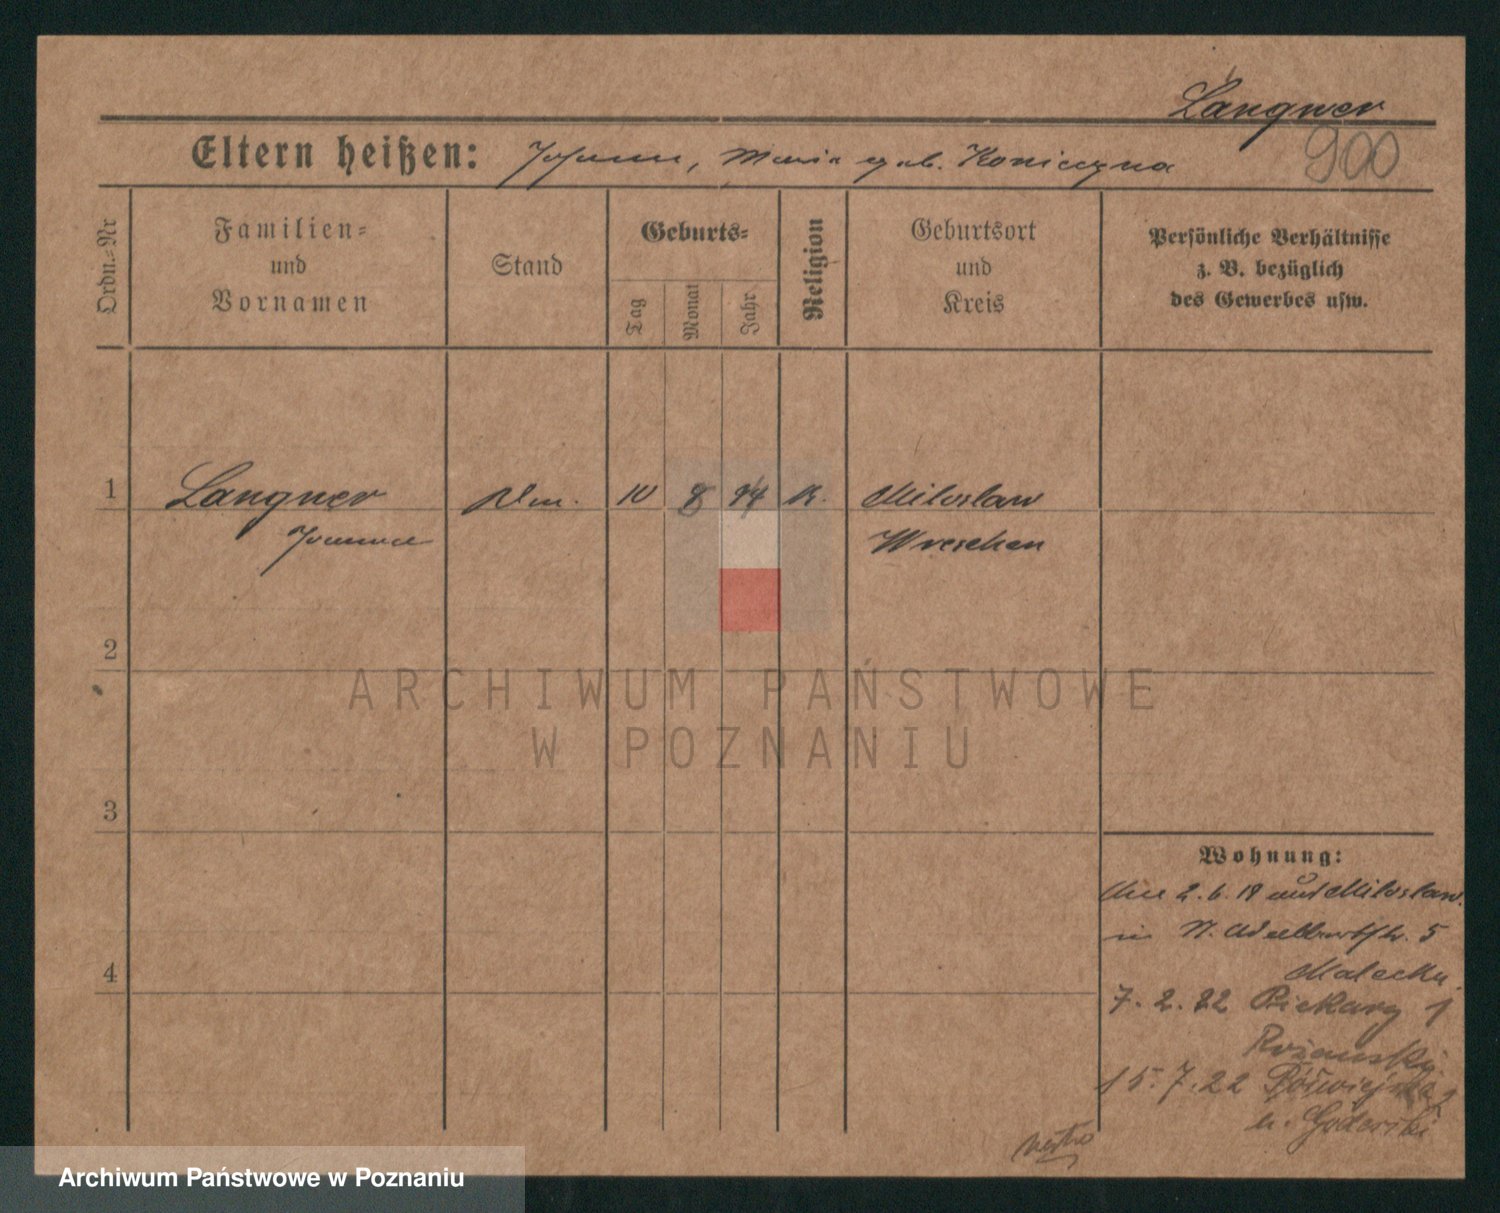 Langner
900
Eltern heißen: Johann, Maria geb. Konieczna
Ordn.-Nr
Familien-
und
Vornamen
Stand
Geburts-
Tag
Monat
Jahr
Religion
Geburtsort
und
Kreis
Persönliche Verhältnisse
z. B. bezüglich
des Gewerbes usw.
1
Langner
10 8 94 K.
Miloslaw
Wreschen
2
ARCHIWUM PAŃSTWOWE
W POZNANIU
3
Wohnung:
2. 6. 19 aus Miloslaw.
in St. Adalbertstr. 5
4
7. 2. 22 Piekary 1
15. 7. 22
Archiwum Państwowe w Poznaniu